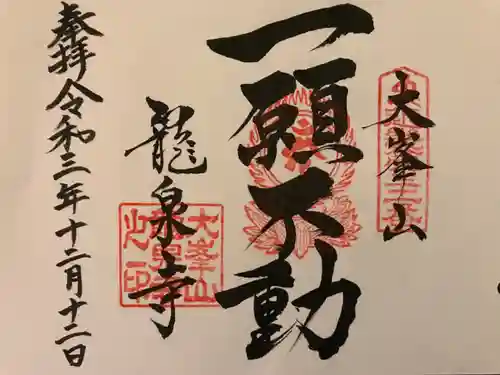 大峯山
一願不動
龍泉寺
奉拝 令和三年十二月十二日